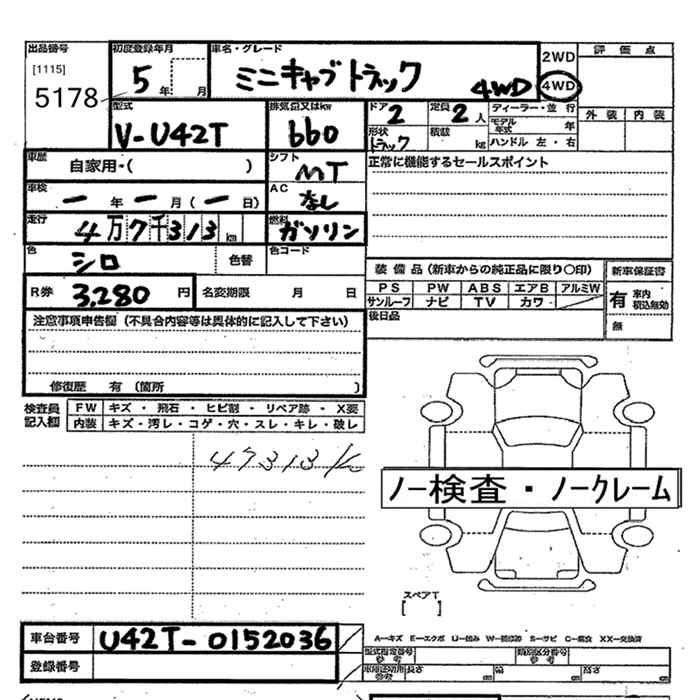 出品番号 初度登録年月 車名・グレード 2WD 評価点
[1115] 5178 5年 月 ミニキャブトラック 4WD 4WD
型式 排気量又はkw ドア 2 定員 2人 ディーラー・並行 外装 内装
V-U42T 660 形状 トラック 積載 kg モデル年式 年
ハンドル 左・右
車歴 自家用・( ) シフト MT 正常に機能するセールスポイント
車検 ー年ー月(ー日) AC なし
走行 4万7千313km 燃料 ガソリン
色 シロ 色替 色コード
装備品(新車からの純正品に限り〇印) 新車保証書
R券 3,280円 名変期限 月 日 PS PW ABS エアB アルミW 有 車内 積込無効
サンルーフ ナビ TV カワ
注意事項申告欄(不具合内容等は具体的に記入して下さい) 後日品 無
修復歴 有(箇所 )
検査員記入欄 FW キズ・飛石・ヒビ割・リペア跡・X要
内装 キズ・汚レ・コゲ・穴・スレ・キレ・破レ
47313 k
ノー検査・ノークレーム
スペアT
[ ]
車台番号 U42T-0152036 A—キズ E—エクボ U—凹み W—補修跡 S—サビ C—腐食 XX—交換済
登録番号 型式指定番号 参考 類別区分番号 参考
車庫証明用 参考 長さ cm 幅 cm 高さ cm